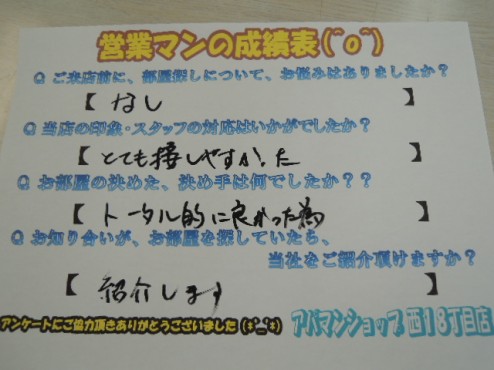 営業マンの成績表(^o^)
Q ご来店前に、部屋探しについて、お悩みはありましたか？
【 なし 】
Q 当店の印象・スタッフの対応はいかがでしたか？
【 とても接しやすかった 】
Q お部屋の決めた、決め手は何でしたか？？
【 トータル的に良かった為 】
Q お知り合いが、お部屋を探していたら、
当社をご紹介頂けますか？
【 紹介します 】
アンケートにご協力頂きありがとうございました(*^_^*)
アパマンショップ 西18丁目店